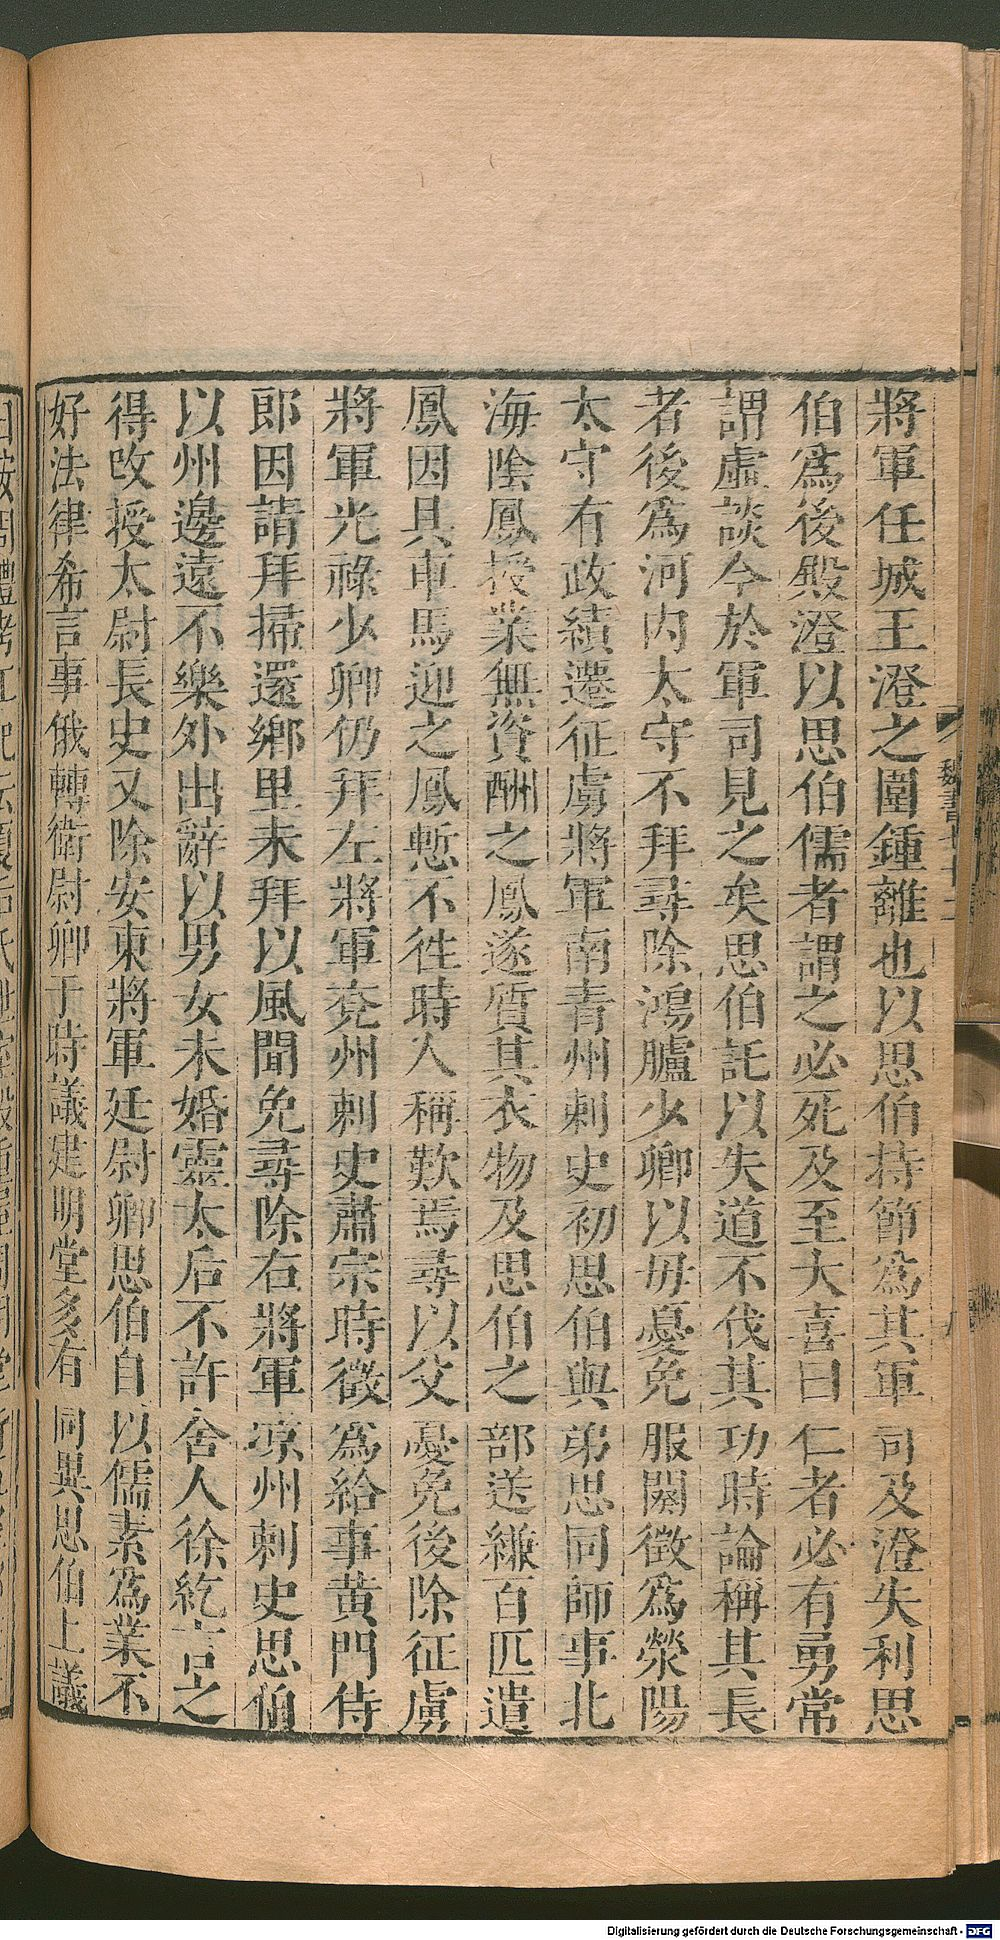 將軍任城王澄之圍鍾離也以思伯持節爲其軍司及澄失利思
伯爲後殿澄以思伯儒者謂之必死及至大喜曰仁者必有勇常
謂虛談今於軍司見之矣思伯託以失道不伐其功時論稱其長
者後爲河內太守不拜尋除鴻臚少卿以毋憂免服闋徵爲滎陽
太守有政績遷征虜將軍南青州刺史初思伯與弟思同師事北
海陰鳳授業無資酬之鳳遂質其衣物及思伯之部送縑百匹遺
鳳因具車馬迎之鳳慙不往時人稱歎焉尋以父憂免後除征虜
將軍光祿少卿仍拜左將軍兗州刺史肅宗時徵爲給事黃門侍
郎因請拜掃還鄉里未拜以風聞免尋除右將軍涼州刺史思伯
以州邊遠不樂外出辭以男女未婚靈太后不許舍人徐紇言之
得改授太尉長史又除安東將軍廷尉卿思伯自以儒素爲業不
好法律希言事俄轉衛尉卿于時議建明堂多有同異思伯上議
魏書七十二
Digitalisierung gefördert durch die Deutsche Forschungsgemeinschaft - DFG